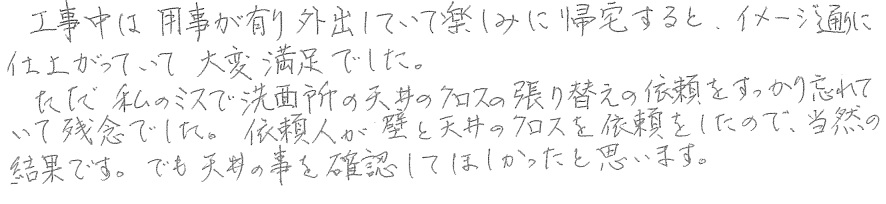 工事中は用事が有り外出していて楽しみに帰宅すると、イメージ通りに
仕上がっていて大変満足でした。
ただ私のミスで洗面所の天井のクロスの張り替えの依頼をすっかり忘れて
いて残念でした。依頼人が壁と天井のクロスを依頼をしたので、当然の
結果です。でも天井の事を確認してほしかったと思います。